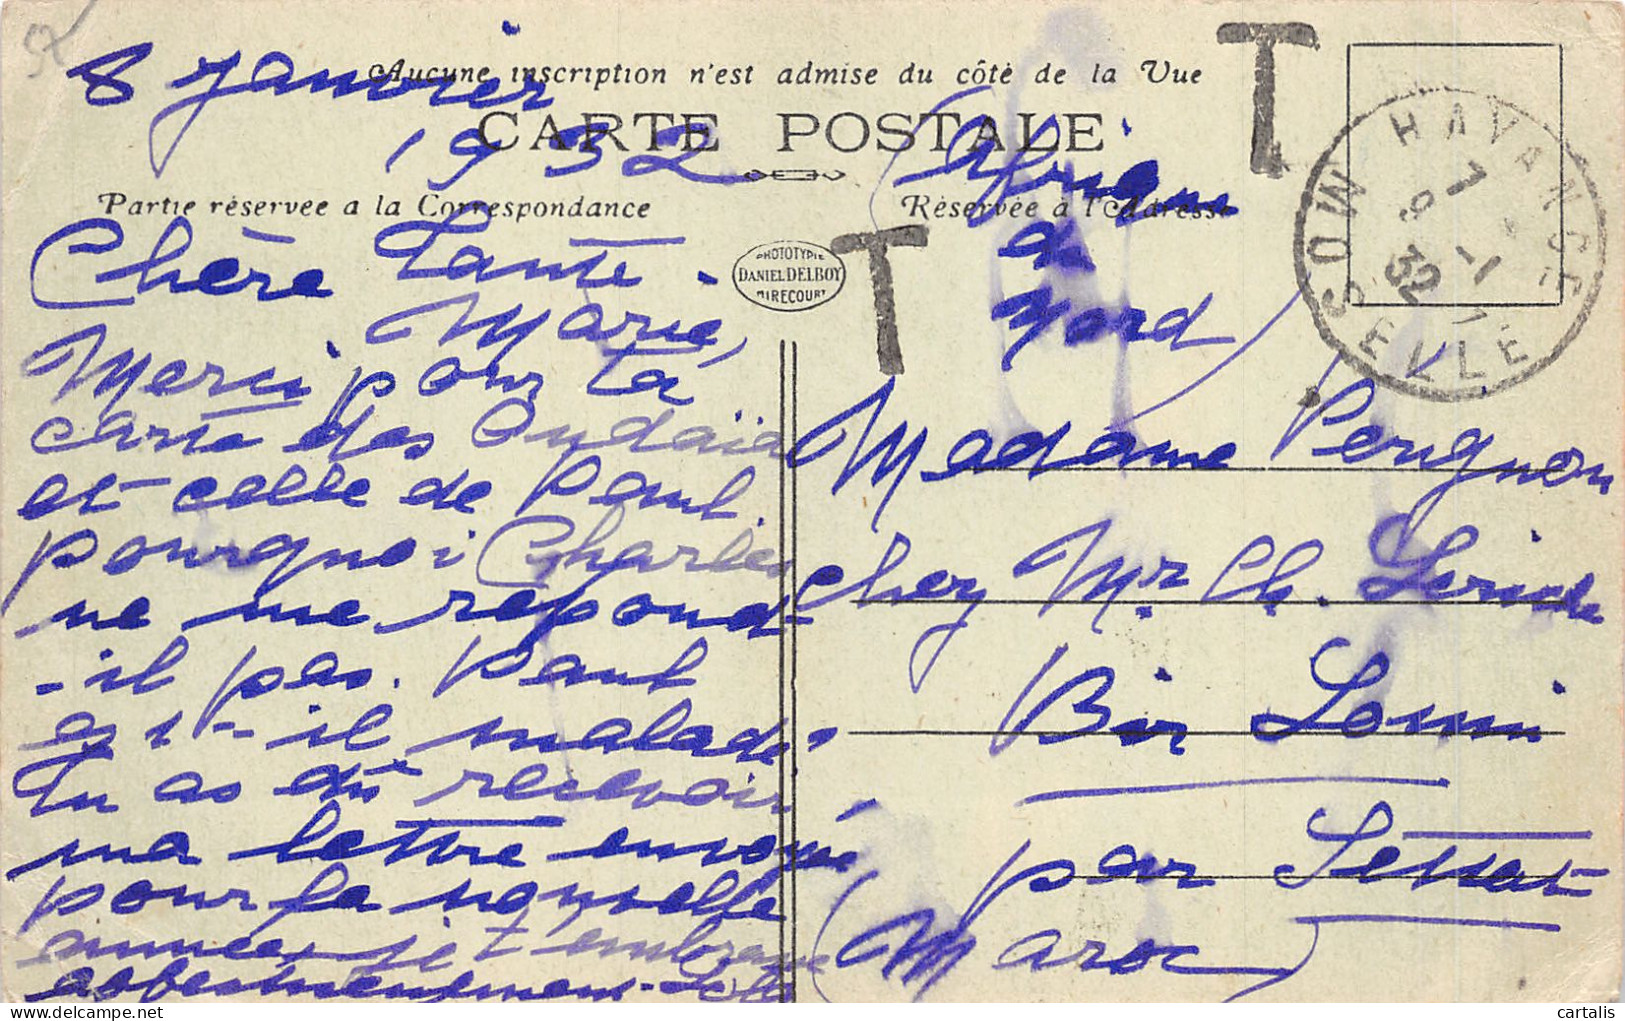 8 Janvier
1932
Aucune inscription n'est admise du côté de la Vue
CARTE POSTALE
Partie réservée a la Correspondance
Réservée à l'Adresse
T
T
HAYANGE
MOSELLE
7
9 -1
32
PHOTOTYPIE
DANIEL DELBOY
MIRECOURT
Chère Tante
Marie,
Merci pour ta
carte des Oudaïa
et celle de Paul.
pourquoi Charles
ne me répond-
-il pas. Paul
est-il malade.
Tu as dû recevoir
ma lettre envoyée
pour la nouvelle
année je t'embrasse
(Afrique
du
Nord)
Madame Perignon
chez Mr. Ch.
Bir
par
(Maroc)
delcampe.net
cartalis